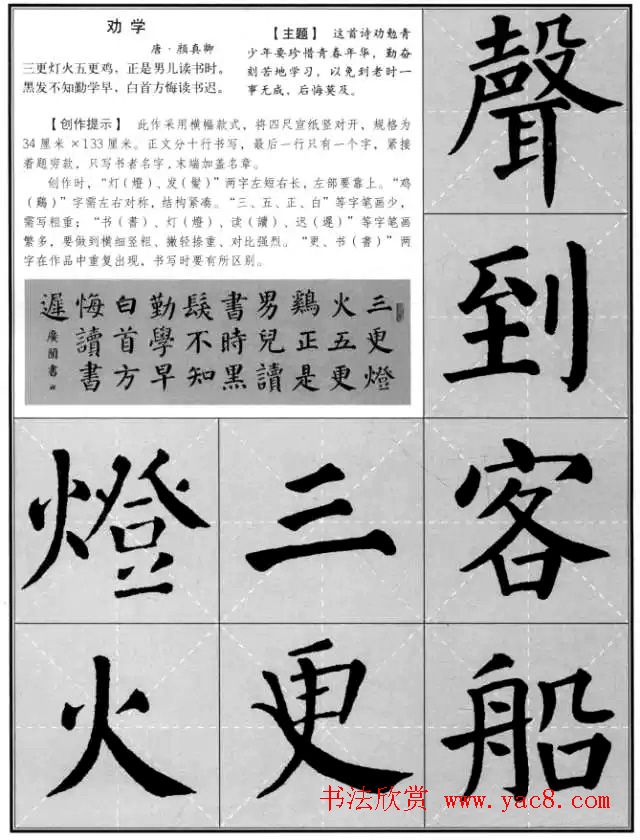 劝学
唐·颜真卿
三更灯火五更鸡，正是男儿读书时。
黑发不知勤学早，白首方悔读书迟。
【主题】 这首诗劝勉青
少年要珍惜青春年华，勤奋
刻苦地学习，以免到老时一
事无成，后悔莫及。
【创作提示】 此作采用横幅款式，将四尺宣纸竖对开，规格为
34厘米×133厘米。正文分十行书写，最后一行只有一个字，紧接
着题穷款，只写书者名字，末端加盖名章。
创作时，“灯（燈）、发（髮）”两字左短右长，左部要靠上。“鸡
（鷄）”字需左右对称，结构紧凑。“三、五、正、白”等字笔画少，
需写粗重；“书（書）、灯（燈）、读（讀）、迟（遲）”等字笔画
繁多，要做到横细竖粗、撇轻捺重、对比强烈。“更、书（書）”两
字在作品中重复出现，书写时要有所区别。
三更燈
火五更
鷄正是
男兒讀
書時黑
髮不知
勤學早
白首方
悔讀書
遲
聲到客船
三更
燈火
书法欣赏 www.yac8.com